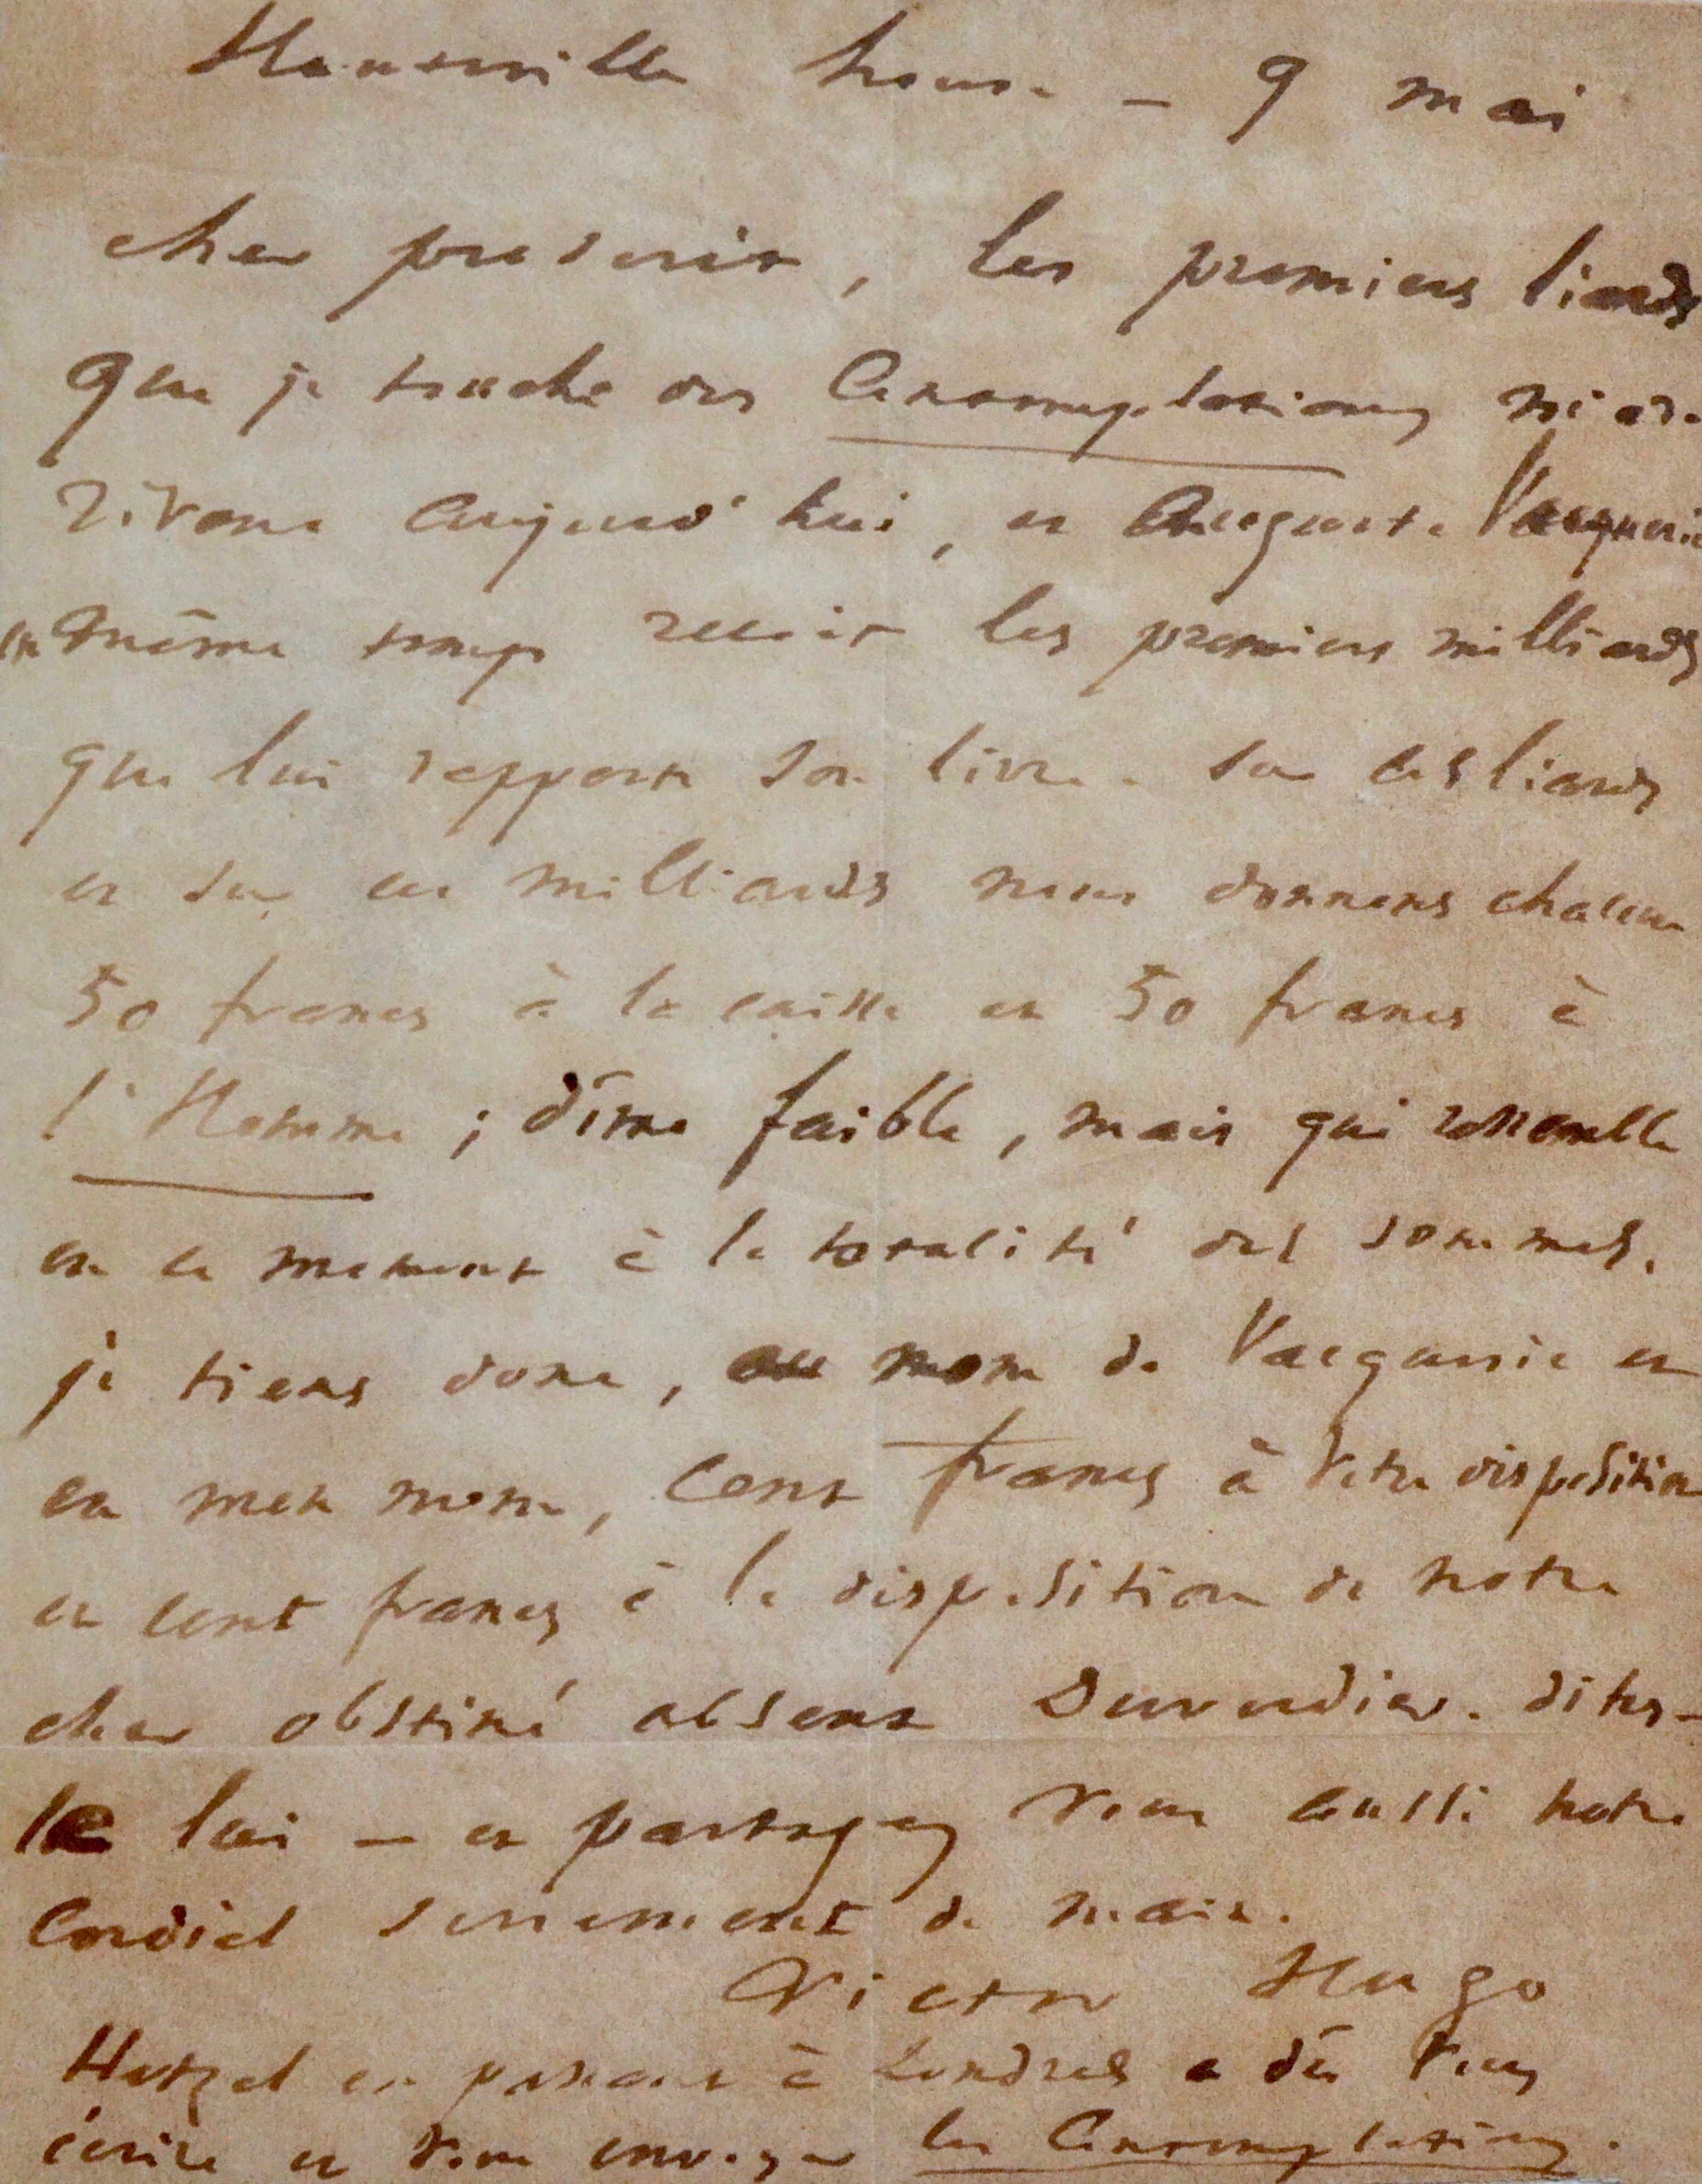 Hauteville house – 9 mai
cher proscrit, les premiers liards
que je touche des Contemplations m'ar-
rivent aujourd'hui, et Auguste Vacquerie
en même temps reçoit les premiers milliards
que lui rapporte son livre. Sur ces liards
et sur ces milliards nous donnons chacun
50 francs à la caisse et 50 francs à
l'Homme ; dîme faible, mais qui ressemble
en ce moment à la totalité des sommes.
je tiens donc, au nom de Vacquerie et
en mon nom, cent francs à votre disposition
et cent francs à la disposition de notre
cher obstiné absent Duverdier. dites-
le lui – et partagez vous aussi notre
cordial serrement de main.
Victor Hugo
Hetzel en passant à Londres a dû vous
écrire et vous envoyer les Contemplations.